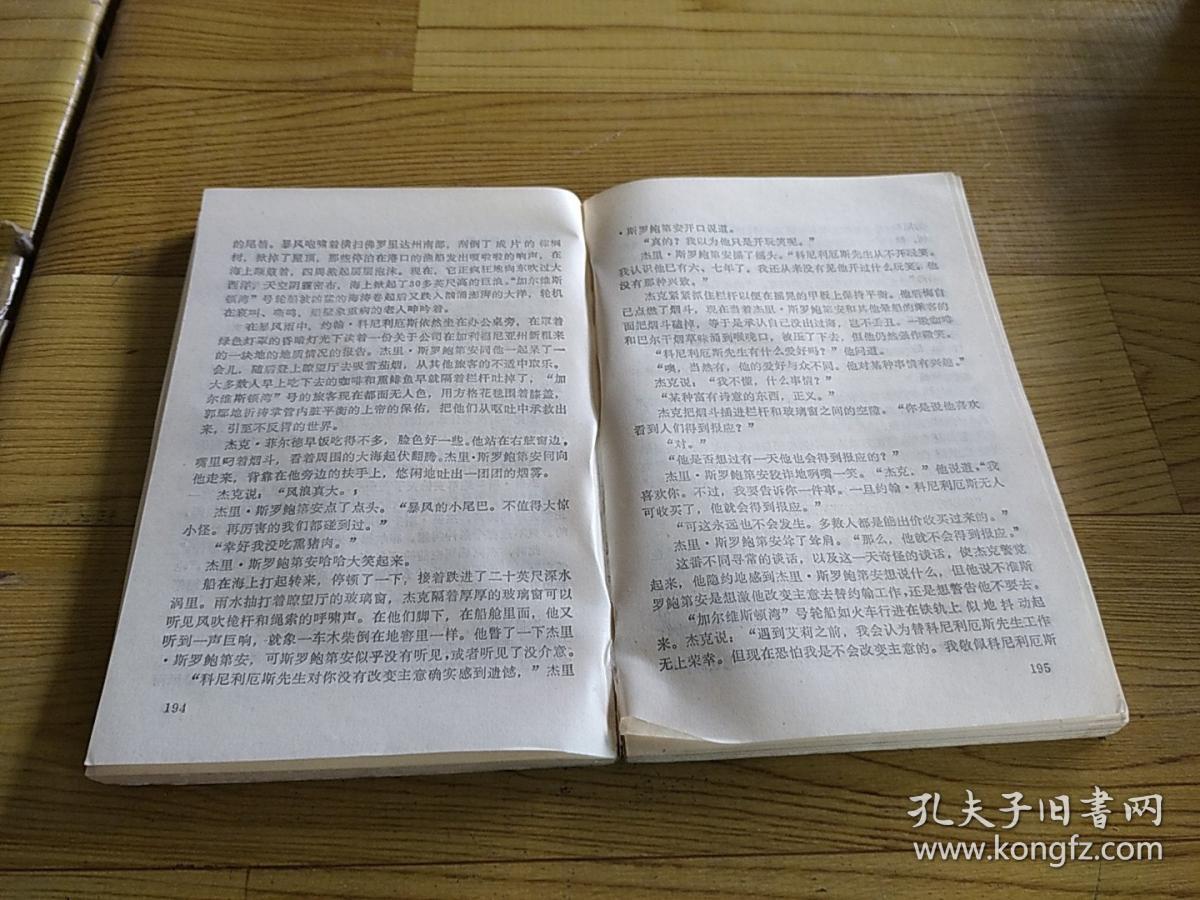 的尾翼。暴风咆啸着横扫佛罗里达州南部，刮倒了成片的棕榈
树，掀掉了屋顶，那些停泊在港口的渔船发出吱啦啦的响声，在
海上颠簸着，四周激起层层泡沫。现在，它正疯狂地向东吹过大
西洋，天空阴霾密布，海上掀起了30多英尺高的巨浪。“加尔维斯
顿湾”号轮船被凶猛的海涛卷起后又跌入汹涌澎湃的大洋，轮机
在哀叫、呜鸣，船壁象重病的老人呻吟着。
在暴风雨中，约翰·科尼利厄斯依然坐在办公桌旁，在罩着
绿色灯罩的昏暗灯光下读着一份关于公司在加利福尼亚州新租来
的一块地的地质情况的报告。杰里·斯罗鲍第安同他一起呆了一
会儿，随后登上瞭望厅去吸雪茄烟，从其他旅客的不适中取乐。
大多数人早上吃下去的咖啡和熏鲱鱼早就隔着栏杆吐掉了，“加
尔维斯顿湾”号的旅客现在都面无人色，用方格花毯围着膝盖，
郭郑地祈祷掌管内脏平衡的上帝的保佑，把他们从呕吐中承救出
来，引至不反胃的世界。
杰克·菲尔德早饭吃得不多，脸色好一些。他站在右舷窗边，
嘴里叼着烟斗，看着周围的大海起伏翻腾。杰里·斯罗鲍第安向
他走来，背靠在他旁边的扶手上，悠闲地吐出一团团的烟雾。
杰克说：“风浪真大。，
杰里·斯罗鲍第安点了点头。“暴风的小尾巴。不值得大惊
小怪。再厉害的我们都碰到过。”
“幸好我没吃熏猪肉。”
杰里·斯罗鲍第安哈哈大笑起来。
船在海上打起转来，停顿了一下，接着跌进了二十英尺深水
涡里。雨水抽打着瞭望厅的玻璃窗，杰克隔着厚厚的玻璃窗可以
听见风吹桅杆和绳索的呼啸声。在他们脚下，在船舱里面，他又
听到一声巨响，就象一车木柴倒在地窖里一样。他瞥了一下杰里
·斯罗鲍第安，可斯罗鲍第安似乎没有听见，或者听见了没介意。
“科尼利厄斯先生对你没有改变主意确实感到遗憾，”杰里
194
·斯罗鲍第安开口说道。
“真的？我以为他只是开玩笑呢。”
杰里·斯罗鲍第安摇了摇头。“科尼利厄斯先生从不开玩笑。
我认识他已有六、七年了。我还从来没有见他开过什么玩笑。他
没有那种兴致。”
杰克紧紧抓住栏杆以便在摇晃的甲板上保持平衡。他后悔自
己点燃了烟斗，现在当着杰里·斯罗鲍第安和其他晕船的乘客的
面把烟斗磕掉，等于是承认自己没出过海，岂不丢丑。一股咖啡
和巴尔干烟草味涌到喉咙口，被压了下去，但他仍然强作微笑。
“科尼利厄斯先生有什么爱好吗？”他问道。
“噢，当然有，他的爱好与众不同。他对某种事情有兴趣。”
杰克说：“我不懂，什么事情？”
“某种富有诗意的东西，正义。”
杰克把烟斗插进栏杆和玻璃窗之间的空隙。“你是说他喜欢
看到人们得到报应？”
“对。”
“他是否想过有一天他也会得到报应的？”
杰里·斯罗鲍第安狡诈地咧嘴一笑。“杰克，”他说道，“我
喜欢你。不过，我要告诉你一件事。一旦约翰·科尼利厄斯无人
可收买了，他就会得到报应。”
“可这永远也不会发生。多数人都是能出价收买过来的。”
杰里·斯罗鲍第安耸了耸肩。“那么，他就不会得到报应。”
这番不同寻常的谈话，以及这一天奇怪的谈话，使杰克警觉
起来，他隐约地感到杰里·斯罗鲍第安想说什么，但他说不准斯
罗鲍第安是想激他改变主意去替约翰工作，还是想警告他不要去。
“加尔维斯顿湾”号轮船如火车行进在铁轨上似地抖动起
来。杰克说：“遇到艾莉之前，我会认为替科尼利厄斯先生工作
无上荣幸。但现在恐怕我是不会改变主意的。我敬佩科尼利厄斯
195
孔夫子旧书网
www.kongfz.com